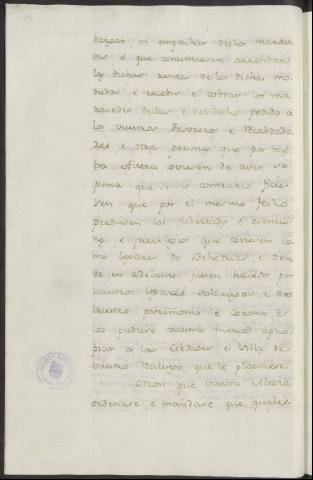 bargar, ni empachar dichos marave
dis é que convinieren arrendar
las dichas rentas de las dichas mo
nedas é recibir é cobrar los ma
ravedis dellas é del dicho pedido á
los vuestros Tesoreros é Recabdado
res é otras personas que por vues
tra Alteza ovieren de aver so
pena que si lo contrario ficie
sen que por el mismo fecho
perdiesen las libertades é esencio
nes é previlegios que tovieren co
mo logares de Behetrias, é den
de en adelante fuesen havidos por
vuestros logares solariegos é de
vuestro patrimonio é corona, é
los pudiese vuestra merced apro
piar á las Cibdades é Villas de
vuestros Reinos, que le ploguiere.
Otrosi que vuestra Alteza
ordenare é mandare que quales